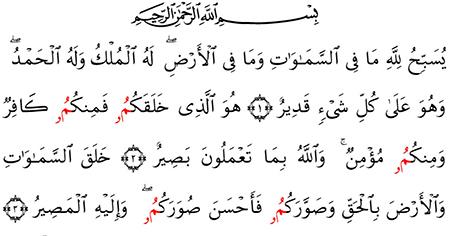 بِسْمِ اللَّهِ الرَّحْمَٰنِ الرَّحِيمِ
يُسَبِّحُ لِلَّهِ مَا فِى السَّمَٰوَاتِ وَمَا فِى الْأَرْضِۖ لَهُ الْمُلْكُ وَلَهُ الْحَمْدُۖ
وَهُوَ عَلَىٰ كُلِّ شَىْءٍ قَدِيرٌ ﴿١﴾ هُوَ الَّذِى خَلَقَكُمُۥ فَمِنكُمُۥ كَافِرٌ
وَمِنكُمُۥ مُؤْمِنٌۚ وَاللَّهُ بِمَا تَعْمَلُونَ بَصِيرٌ ﴿٢﴾ خَلَقَ السَّمَٰوَاتِ
وَالْأَرْضَ بِالْحَقِّ وَصَوَّرَكُمُۥ فَأَحْسَنَ صُوَرَكُمُۥۖ وَإِلَيْهِ الْمَصِيرُ ﴿٣﴾